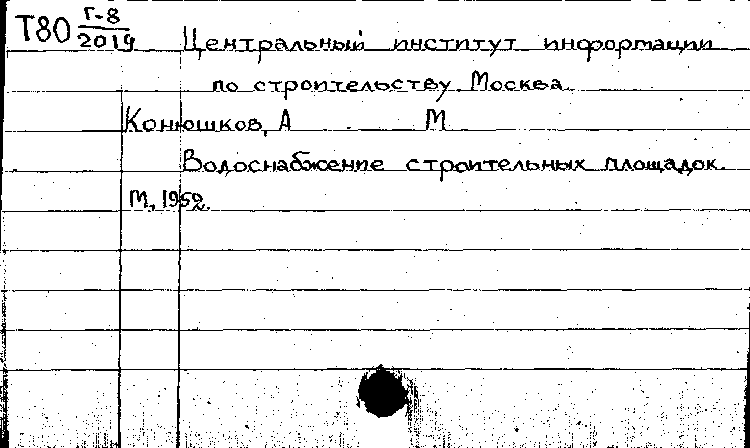 Т80 Г-8
2019
Центральный институт информации
по строительству. Москва
Конюшков, А М
Водоснабжение строительных площадок.
М, 1952.